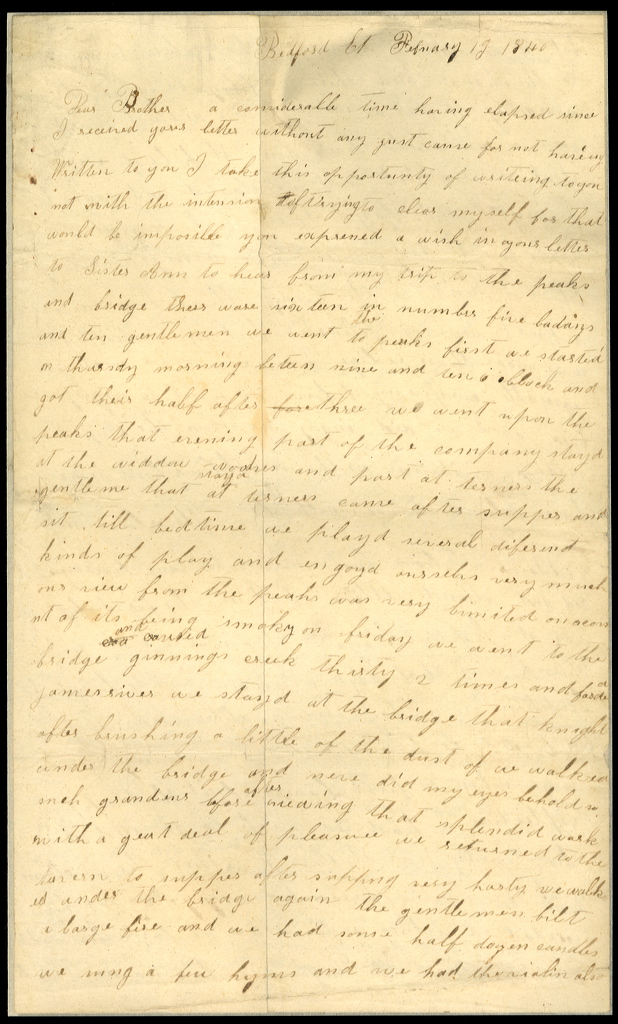 Bedford Ct Febuary 19 1840
Dear Brother a considerable time having elapsed since
I received yours letter without any just cause for not having
Written to you I take this opportunity of writeing to you
not with the intension of trying to clear myself for that
would be imposible you expressed a wish in yours letter
to Sister Ann to hear from my trip to the peaks
and bridge there ware sixteen in number five ladays
and ten gentlemen we went to the peaks first we started
on thursdy morning beteen nine and ten o clock and
got their half after three we went upon the
peaks that evening part of the company stayd
at the widdow and part at the
gentleme that stayd at came after supper and
sit till bedtime we playd several diferent
kinds of play and engoyd ourselvs very much
our view from the peaks was very limited on acou
nt of its being smoky on friday we went to the
bridge and crossed ginnings creek thirty 2 times and
james river we stayd at the bridge that knight
after brushing a little of the dust of we walked
under the bridge and never did my eyes behold
such grandeur before after viewing that splendid work
with a great deal of pleasure we returned to the
tavern to supper after supping very harty we walk
ed under the bridge again the gentlemen bilt
a large fire and we had some half dozen candles
we sung a few hyms and we had the violin also